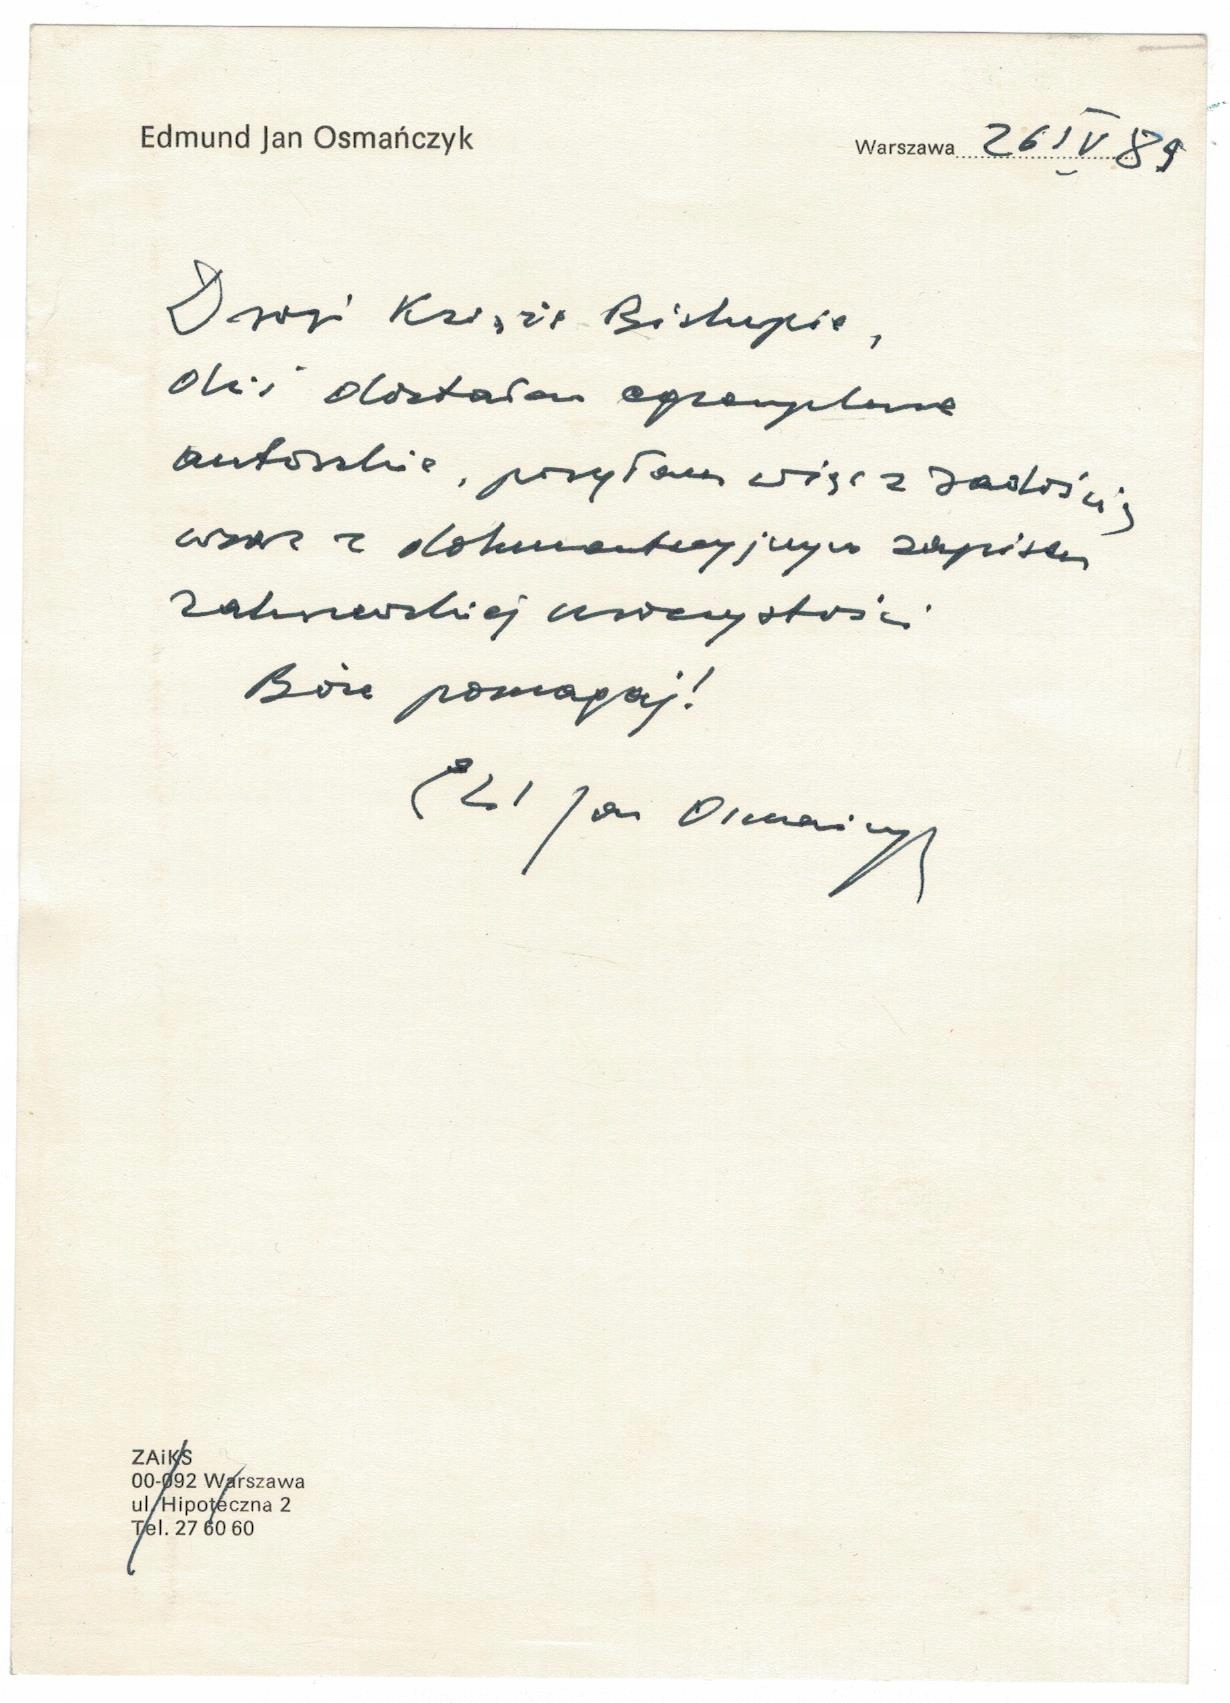 Edmund Jan Osmańczyk
Warszawa 26 IV 89
Drogi Księże Biskupie,
dziś dostałem egzemplarze
autorskie, posyłam więc z radością
wraz z dokumentacyjnym zapisem
zakrzewskiej uroczystości
Boże pomagaj!
Jan Osmańczyk
ZAiKS
00-092 Warszawa
ul. Hipoteczna 2
Tel. 27 60 60